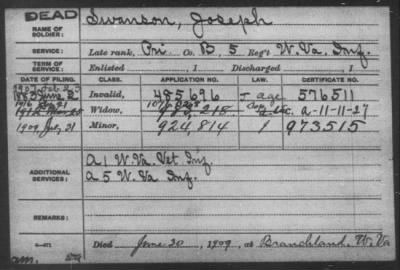 DEAD
NAME OF SOLDIER: Swanson, Joseph
SERVICE: Late rank, Pri Co. B, 5 Reg't W. Va. Inf.
TERM OF SERVICE: Enlisted , 1 Discharged , 1
DATE OF FILING. CLASS. APPLICATION NO. LAW. CERTIFICATE NO.
Invalid, 485696 576511
Widow, a-11-11-27
1909 July 31 Minor, 924,814 973515
ADDITIONAL SERVICES: A 1 W. Va. Vet Inf.
A 5 W. Va Inf.
REMARKS:
Died June 30, 1909, at Branchland, W. Va